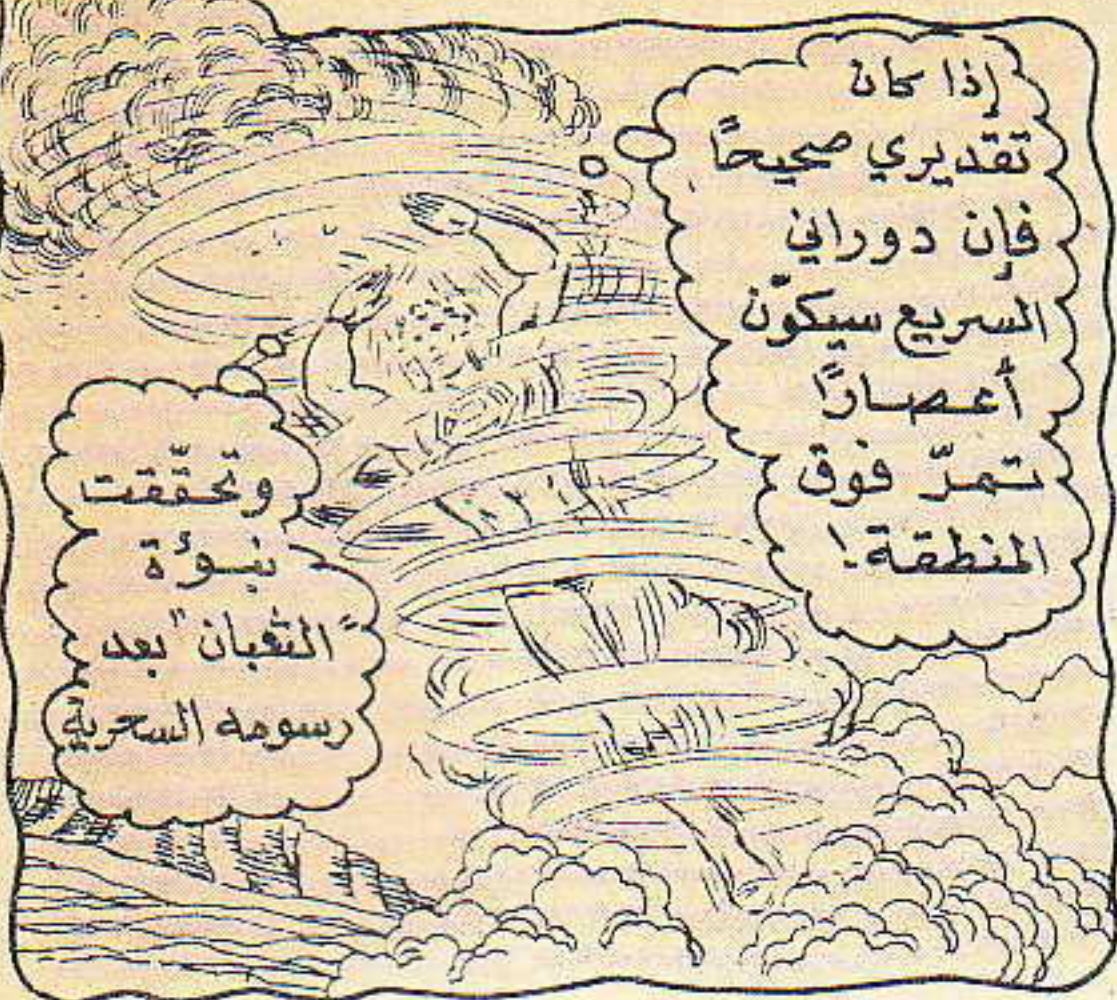 إذا كان
تقديري صحيحًا
فإن دوراني
السريع سيكوّن
أعصارًا
تمرّ فوق
المنطقة!
وتحقّقت
نبوءة
"الثعبان" بعد
رسومه السحرية